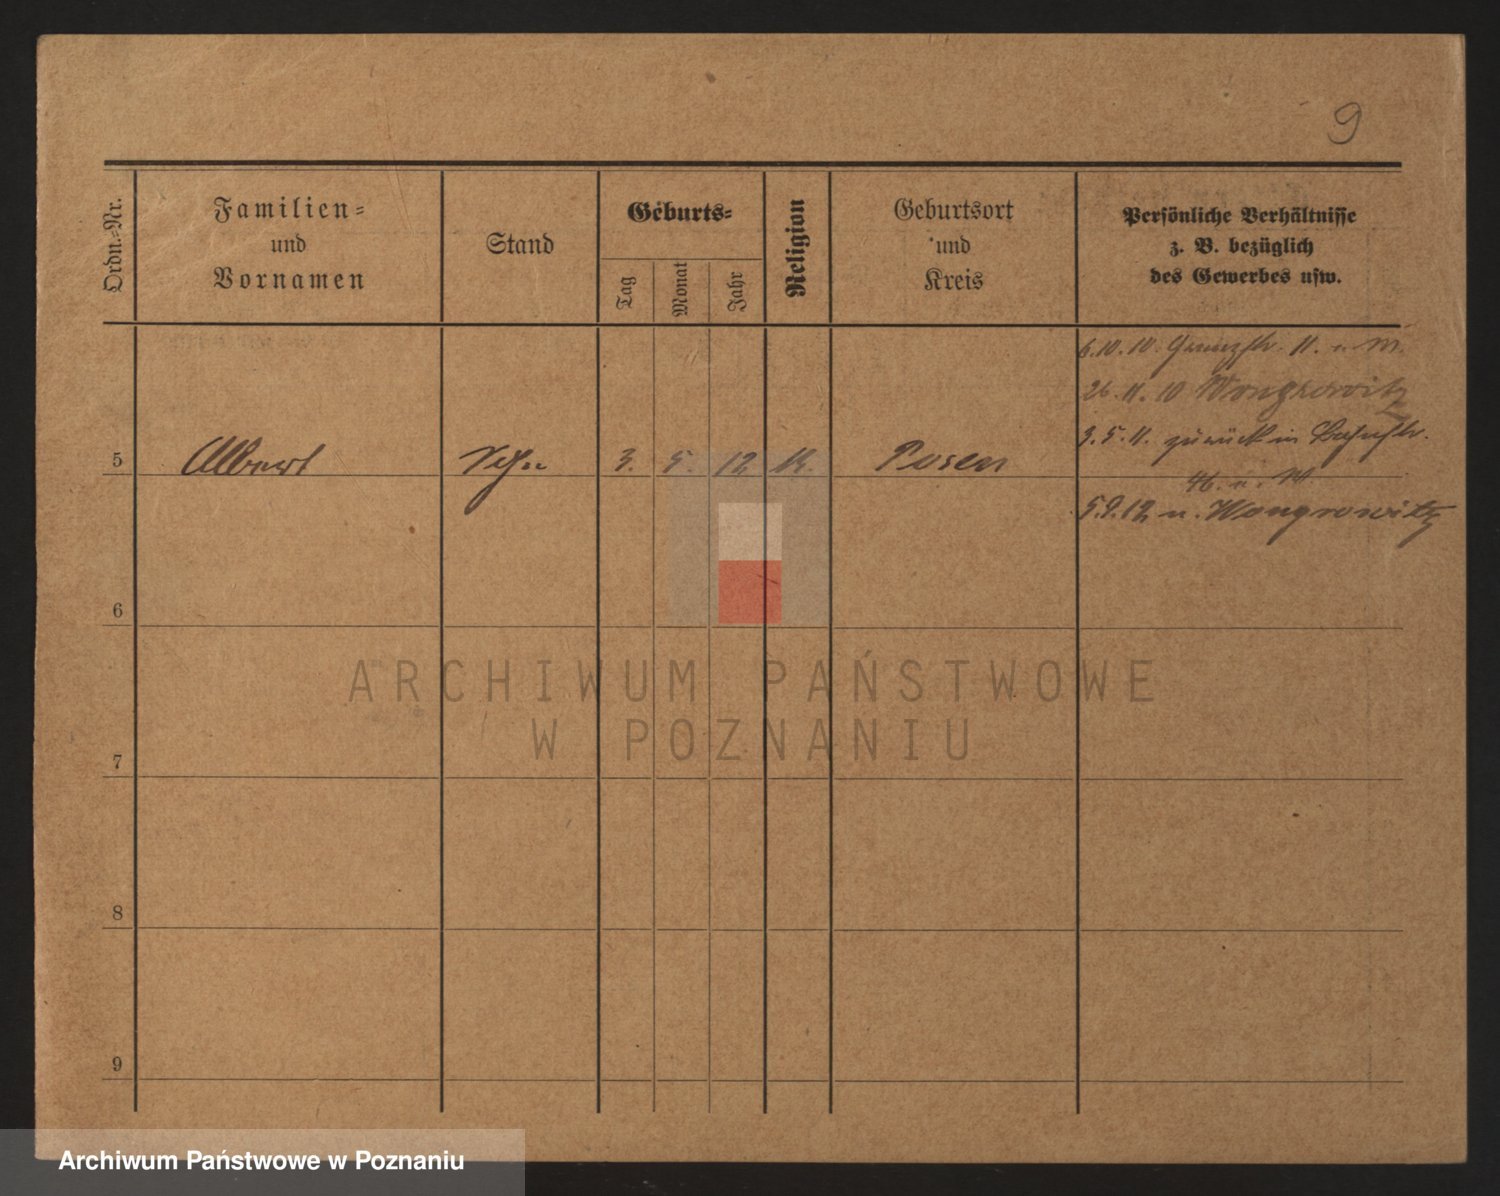 9
Ordn.-Nr.
Familien-
und
Vornamen
Stand
Geburts-
Tag
Monat
Jahr
Religion
Geburtsort
und
Kreis
Persönliche Verhältnisse
z. B. bezüglich
des Gewerbes usw.
6.10.10. 11.
26.11.10 Wongrowitz
3.5.11. zurück in
5 Albert 3. 5. 12 Posen
46. 14
5.9.12 n. Wongrowitz
6
7
8
9
ARCHIWUM PAŃSTWOWE
W POZNANIU
Archiwum Państwowe w Poznaniu